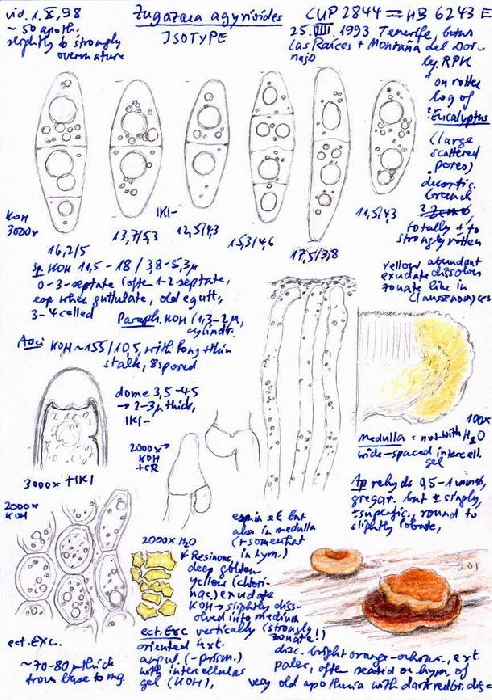 vid. 1.X.98
~ 50 apoth.
slightly to strongly
overmature
Zugazaea agyrioides
ISOTYPE
CUP 2844 = HB 6243 E
25.III 1993 Tenerife, betw.
Las Raíces + Montaña del Dor-
najo
leg. RPK
on rotten
log of
Eucalyptus
(large
scattered
pores)
decortic.
branch
totally
strongly rotten
KOH
3000x
16,2/5
13,7/5,3
IKI-
12,5/4,3
15,3/4,6
17,5/3,8
11,5/4,3
sp KOH 11,5-18 / 3,8-5,3µ
0-3-septate (often 1-2 septate,
esp when guttulate, old egutt,
3-4 celled
Paraph. KOH 1,3-2 µ,
cylindr.
Asci KOH ~155/10,5, with long + thin
stalk, 8 spored
yellow abundant
exudate dissolves
dome 3,5-4,5
→ 2-3µ thick,
IKI-
3000x + IKI
2000x
KOH
+CR
100x
H2O
Medulla: not with
wide-spaced intercell.
gel
Ap rehyd. 0,5-1 mm,
gregar. but ± singly,
superfic., round to
slightly lobate,
2000x
KOH
espec. in ect. exc. but
also in medulla
(+ somewhat
in hym.)
2000x H2O
Resinous,
deep golden
yellow (chlori-
naceous) exudate
KOH → slightly diss-
olved into medium
ect. Exc.
~70-80 µ thick
from base to mg.
ect. Exc vertically (strongly
oriented text.
angul. (-prism.)
with intercellular
gel (KOH),
disc. bright orange-ochrac., ext.
paler, often seated on hym. of
very old apothecia with dark redbr. disc